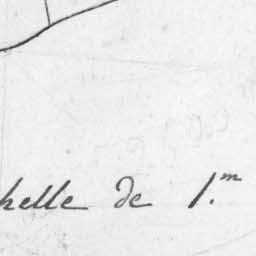 helle de 1.m